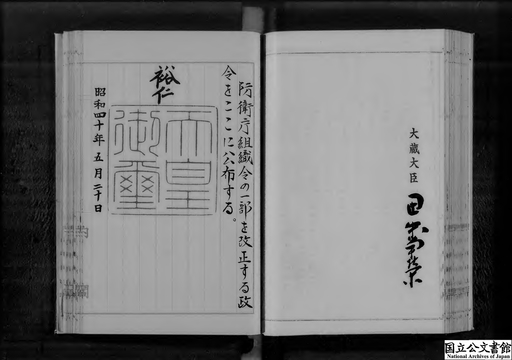 大蔵大臣
田中角榮
防衛庁組織令の一部を改正する政
令をここに公布する。
裕仁
天皇
御璽
昭和四十年五月二十日
国立公文書館
National Archives of Japan